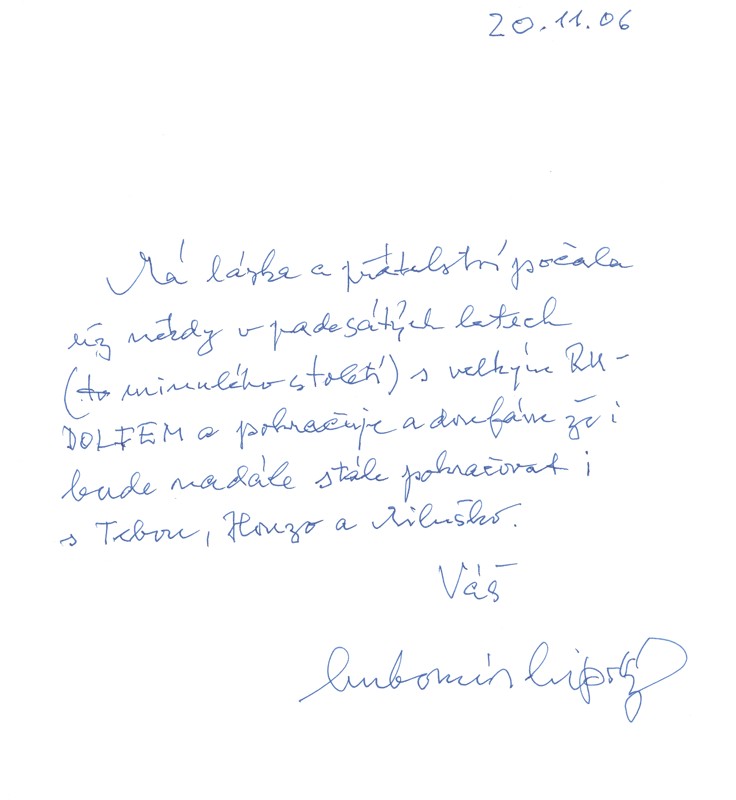 20.11.06
Má láska a přátelství počala
už někdy v padesátých letech
(to minulého století) s velkým RU-
DOLFEM a pokračuje a doufám že i
bude nadále stále pokračovat i
s Tebou, Honzo a Miluško.
Váš
Lubomír Lipský